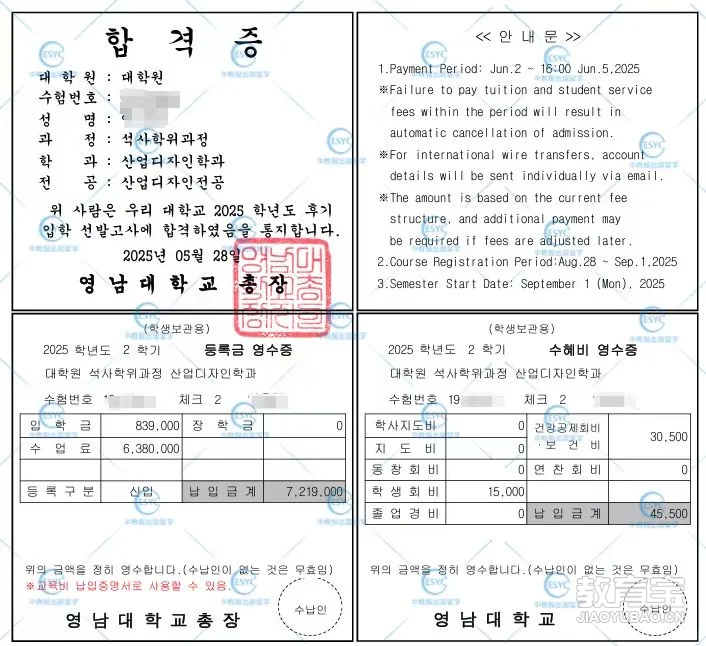 합격증
대학원 : 대학원
수험번호 :
성명 :
과정 : 석사학위과정
학과 : 산업디자인학과
전공 : 산업디자인전공
위 사람은 우리 대학교 2025 학년도 후기
입학 선발고사에 합격하였음을 통지합니다.
2025년 05월 28일
영남대학교총장
<< 안 내 문 >>
1.Payment Period: Jun.2 ~ 16:00 Jun.5,2025
※Failure to pay tuition and student service
fees within the period will result in
automatic cancellation of admission.
※For international wire transfers, account
details will be sent individually via email.
※The amount is based on the current fee
structure, and additional payment may
be required if fees are adjusted later.
2.Course Registration Period:Aug.28 ~ Sep.1,2025
3.Semester Start Date: September 1 (Mon), 2025
(학생보관용)
2025 학년도 2 학기 등록금 영수증
대학원 석사학위과정 산업디자인학과
수험번호 체크 2
입학금 839,000 장학금 0
수업료 6,380,000
등록구분 신입 납입금계 7,219,000
위의 금액을 정히 영수합니다.(수납인이 없는 것은 무효임)
※교육비 납입증명서로 사용할 수 있음.
영남대학교총장
수납인
(학생보관용)
2025 학년도 2 학기 수혜비 영수증
대학원 석사학위과정 산업디자인학과
수험번호 19 체크 2
학사지도비 0 건강공제회비·보건비 30,500
지도비 0
동창회비 0 연찬회비 0
학생회비 15,000
졸업경비 0 납입금계 45,500
위의 금액을 정히 영수합니다.(수납인이 없는 것은 무효임)
영남대학교
수납인
ESYC
中教报出国留学
教育宝
JIAOYUBAO.CN